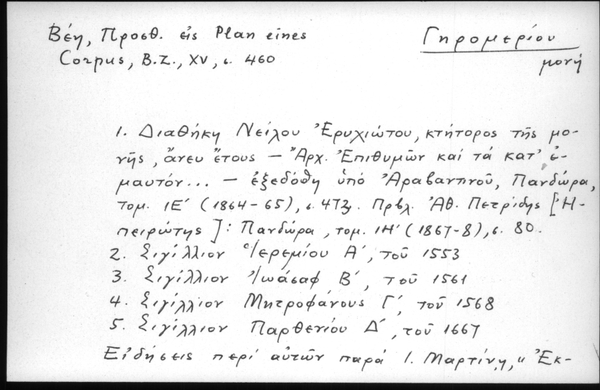 Βέη, Προσθ. εἰς Plan eines
Corpus, B.Z., XV, σ. 460
Γηρομερίου
μονή
1. Διαθήκη Νείλου Ἐρυχιώτου, κτήτορος τῆς μο-
νῆς, ἄνευ ἔτους – Ἀρχ. Ἐπιθυμῶν καί τά κατ' ἐ-
μαυτόν... – ἐξεδόθη ὑπό Ἀραβαντινοῦ, Πανδώρα,
τομ. ΙΕ' (1864-65), σ. 473. Πρβλ. Ἀθ. Πετρίδης [Ἠ-
πειρώτης]: Πανδώρα, τομ. ΙΗ' (1867-8), σ. 80.
2. Σιγίλλιον Ἱερεμίου Α', τοῦ 1553
3. Σιγίλλιον Ἰωάσαφ Β', τοῦ 1561
4. Σιγίλλιον Μητροφάνους Γ', τοῦ 1568
5. Σιγίλλιον Παρθενίου Δ', τοῦ 1667
Εἰδήσεις περί αὐτῶν παρά Ι. Μαρτίνῃ, "Ἐκ-